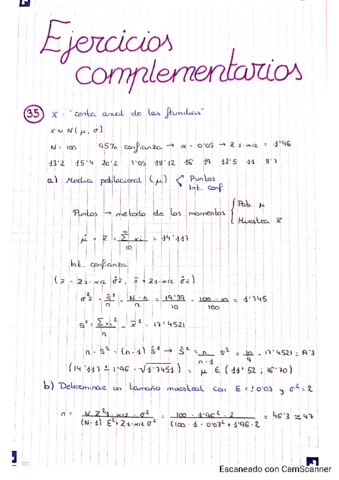 Ejercicios
complementarios
35 x = "renta anual de las familias"
x ~ N(μ, σ)
N = 100 95% confianza → α = 0'05 → Z1-α/2 = 1'96
13'2 15'4 20'2 7'05 18'12 16 19 12'5 11 8'7
a) Media poblacional (μ) Puntos
Int. conf.
Puntos → método de los momentos Pob μ
Muestra x̄
μ̂ = x̄ = Σ xi / 10 = 14'117
Int. confianza
(x̄ - Z1-α/2 σ̂x̄, x̄ + Z1-α/2 σ̂x̄)
σ̂²x̄ = Ŝ²/n · N-n/N = 19'39/10 · 100-10/100 = 1'745
S² = Σ xi²/n - x̄² = 17'4521
n · S² = (n-1) Ŝ² → Ŝ² = n/n-1 S² = 10/9 · 17'4521 =
(14'117 ± 1'96 · √1'7451) = μ ∈ (11'52 ; 16'70)
b) Determinar un tamaño muestral con E = ± 0'03 y σ² = 2
n = N Z²1-α/2 · σ² / (N-1) · E² + Z²1-α/2 · σ² = 100 · 1'96² · 2 / (100-1 · 0'03² + 1'96 · 2 = 46'3 ≈ 47
Escaneado con CamScanner